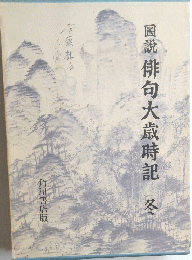 圖説 俳句大歳時記 冬
角川書店版